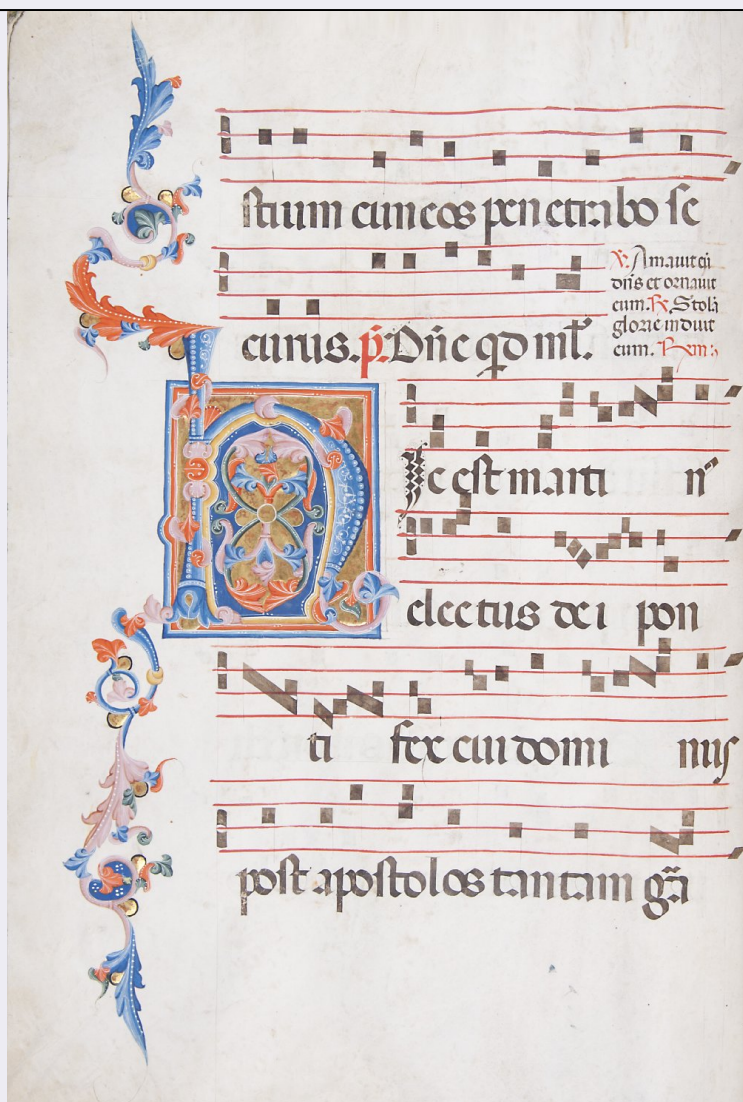 stium cuneos penetrabo se
curus. p̄. Dn̄e qd ml̄t.
℣. Amavit eū
dn̄s et ornavit
eum. ℟. Stolā
glorie induit
eum.
Hic est marti n9
electus dei pon
ti fex cui domi nus
post apostolos tantam grā